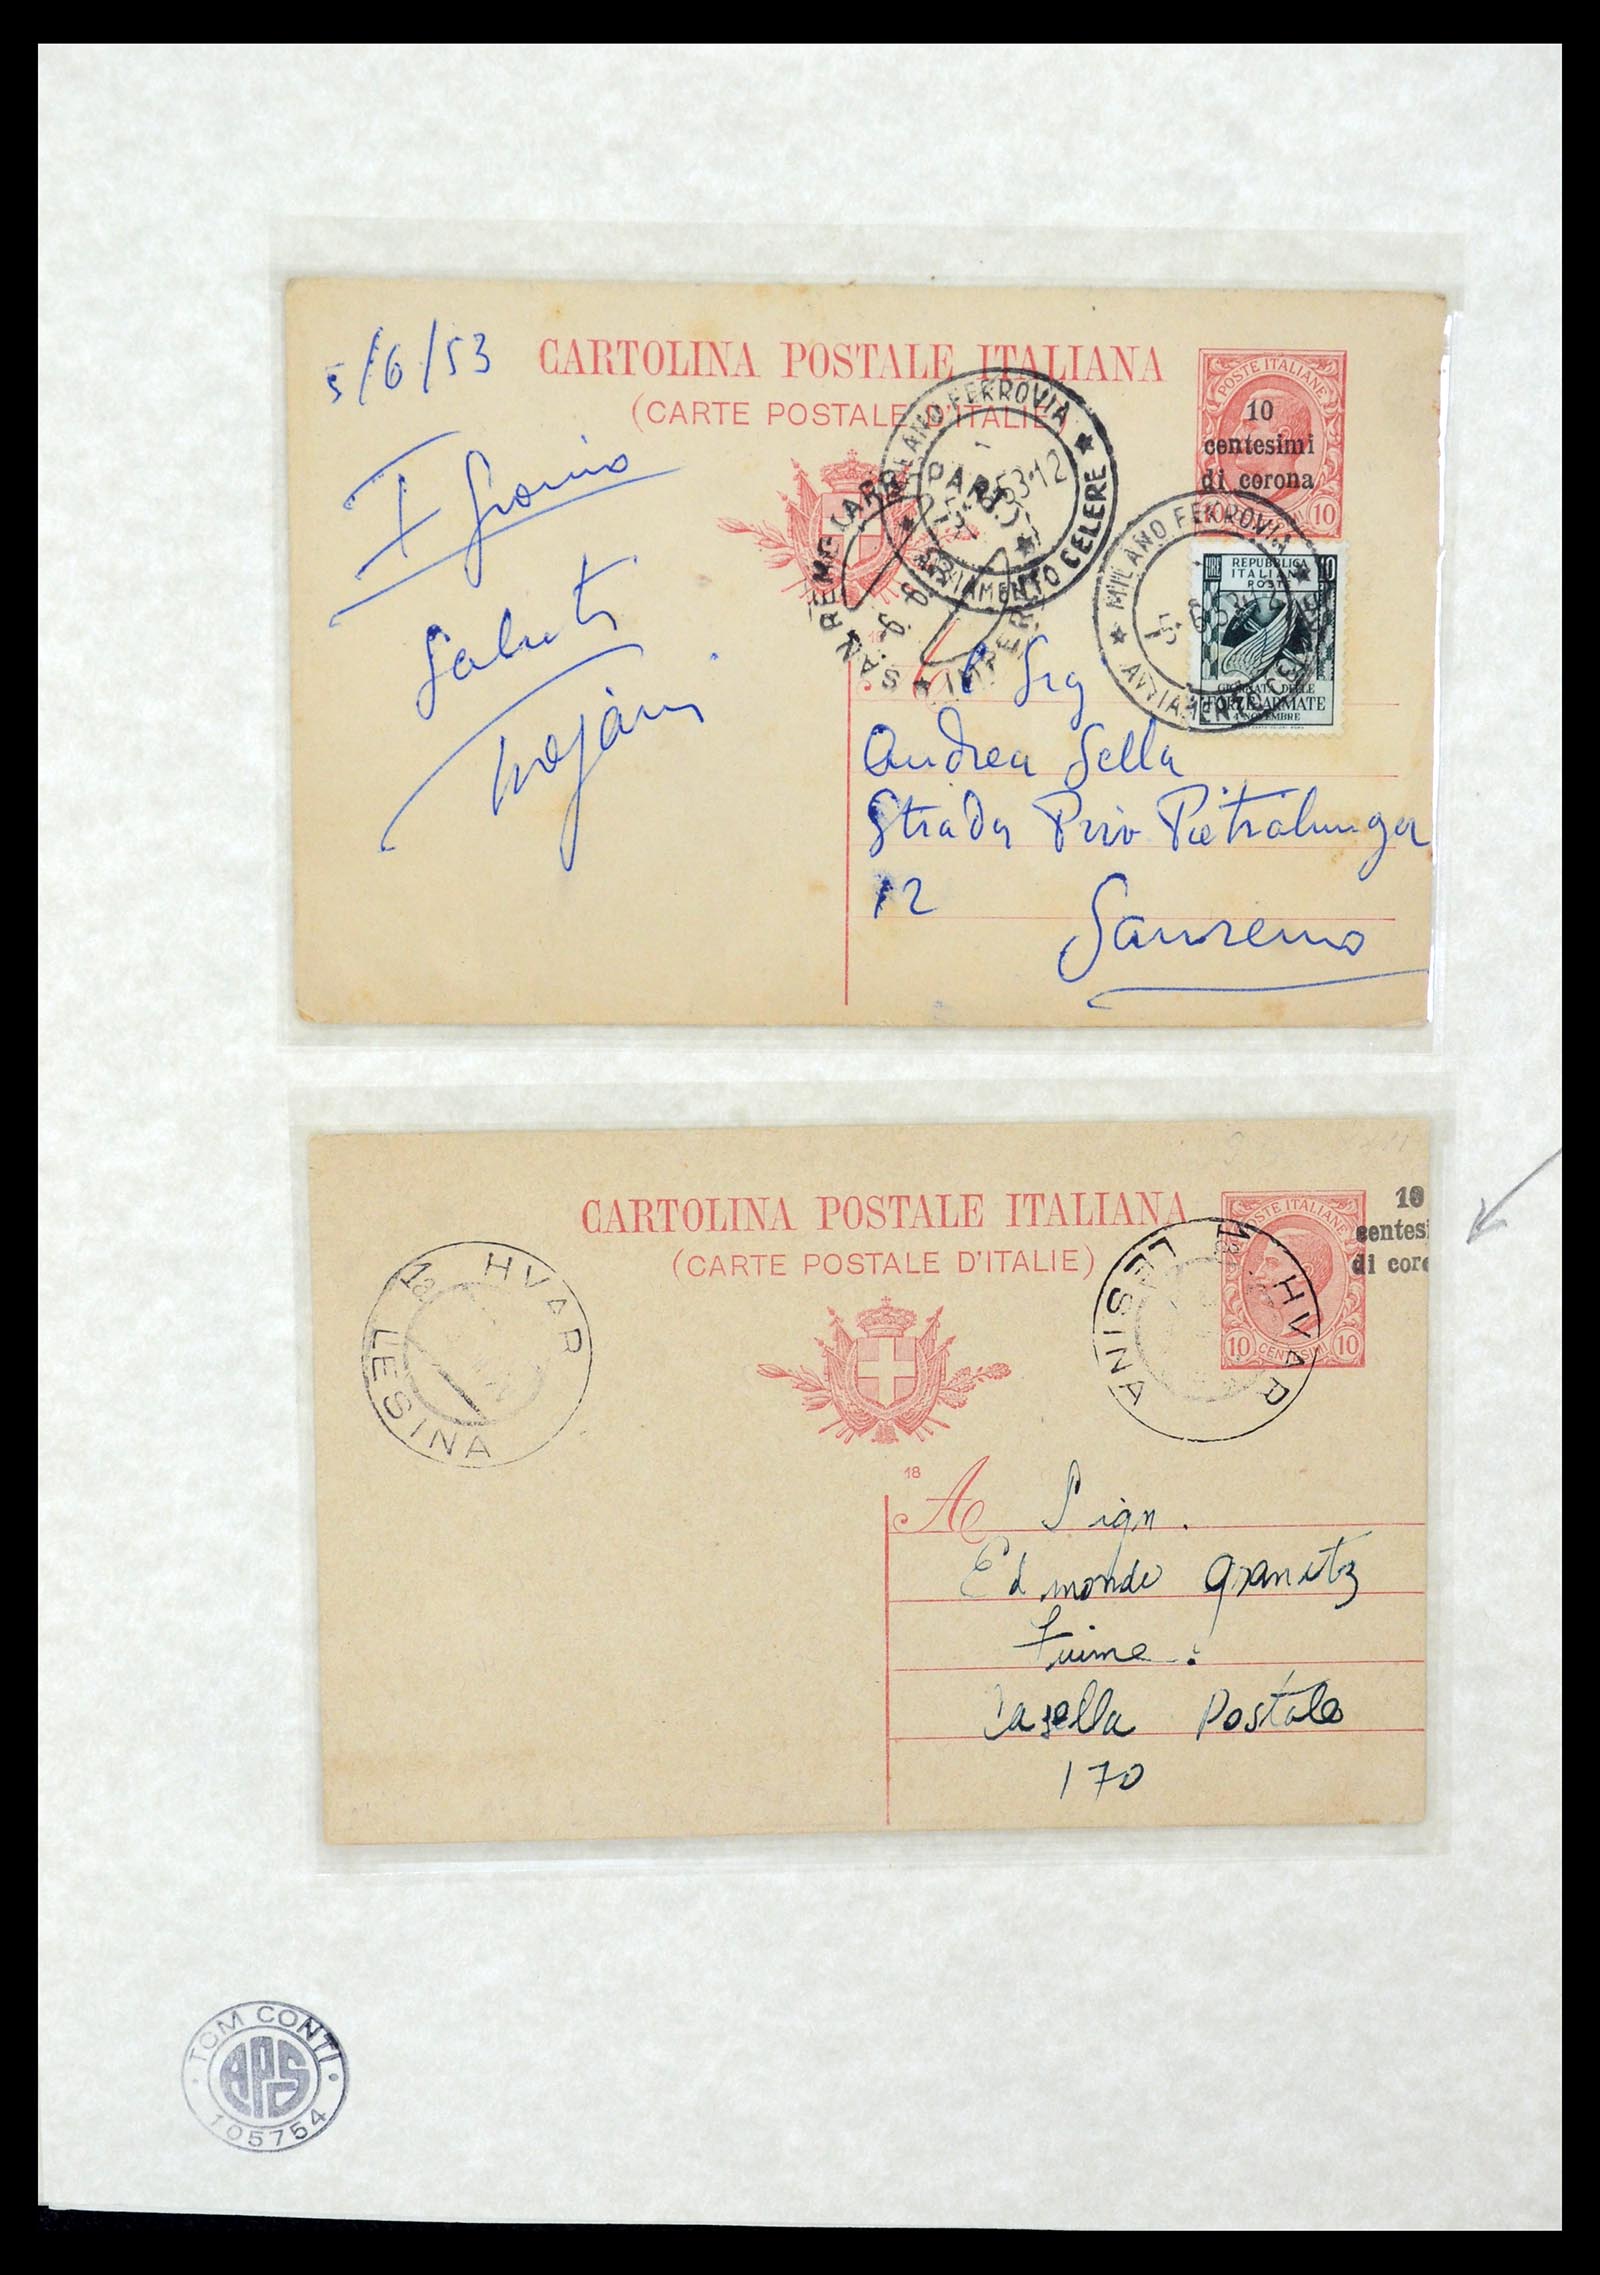 5/6/53
CARTOLINA POSTALE ITALIANA
(CARTE POSTALE D'ITALIE)
POSTE ITALIANE
10
centesimi
di corona
10
I Giorno
Saluti
Trojani
MILANO FERROVIA
AVVIAMENTO CELERE
SANREMO
IMPERIA
MILANO FERROVIA
AVVIAMENTO CELERE
REPUBBLICA
ITALIANA
POSTE
LIRE 10
GIORNATA DELLE
FORZE ARMATE
4 NOVEMBRE
Sig
Andrea Sella
Strada Priv Pietralunga
12
Sanremo
CARTOLINA POSTALE ITALIANA
(CARTE POSTALE D'ITALIE)
POSTE ITALIANE
10 CENTESIMI 10
10
centesi
di coro
HVAR
LESINA
HVAR
LESINA
18
A Sign.
Edmondo Granitz
Fiume.
Casella Postale
170
TOM CONTI
APS
105754